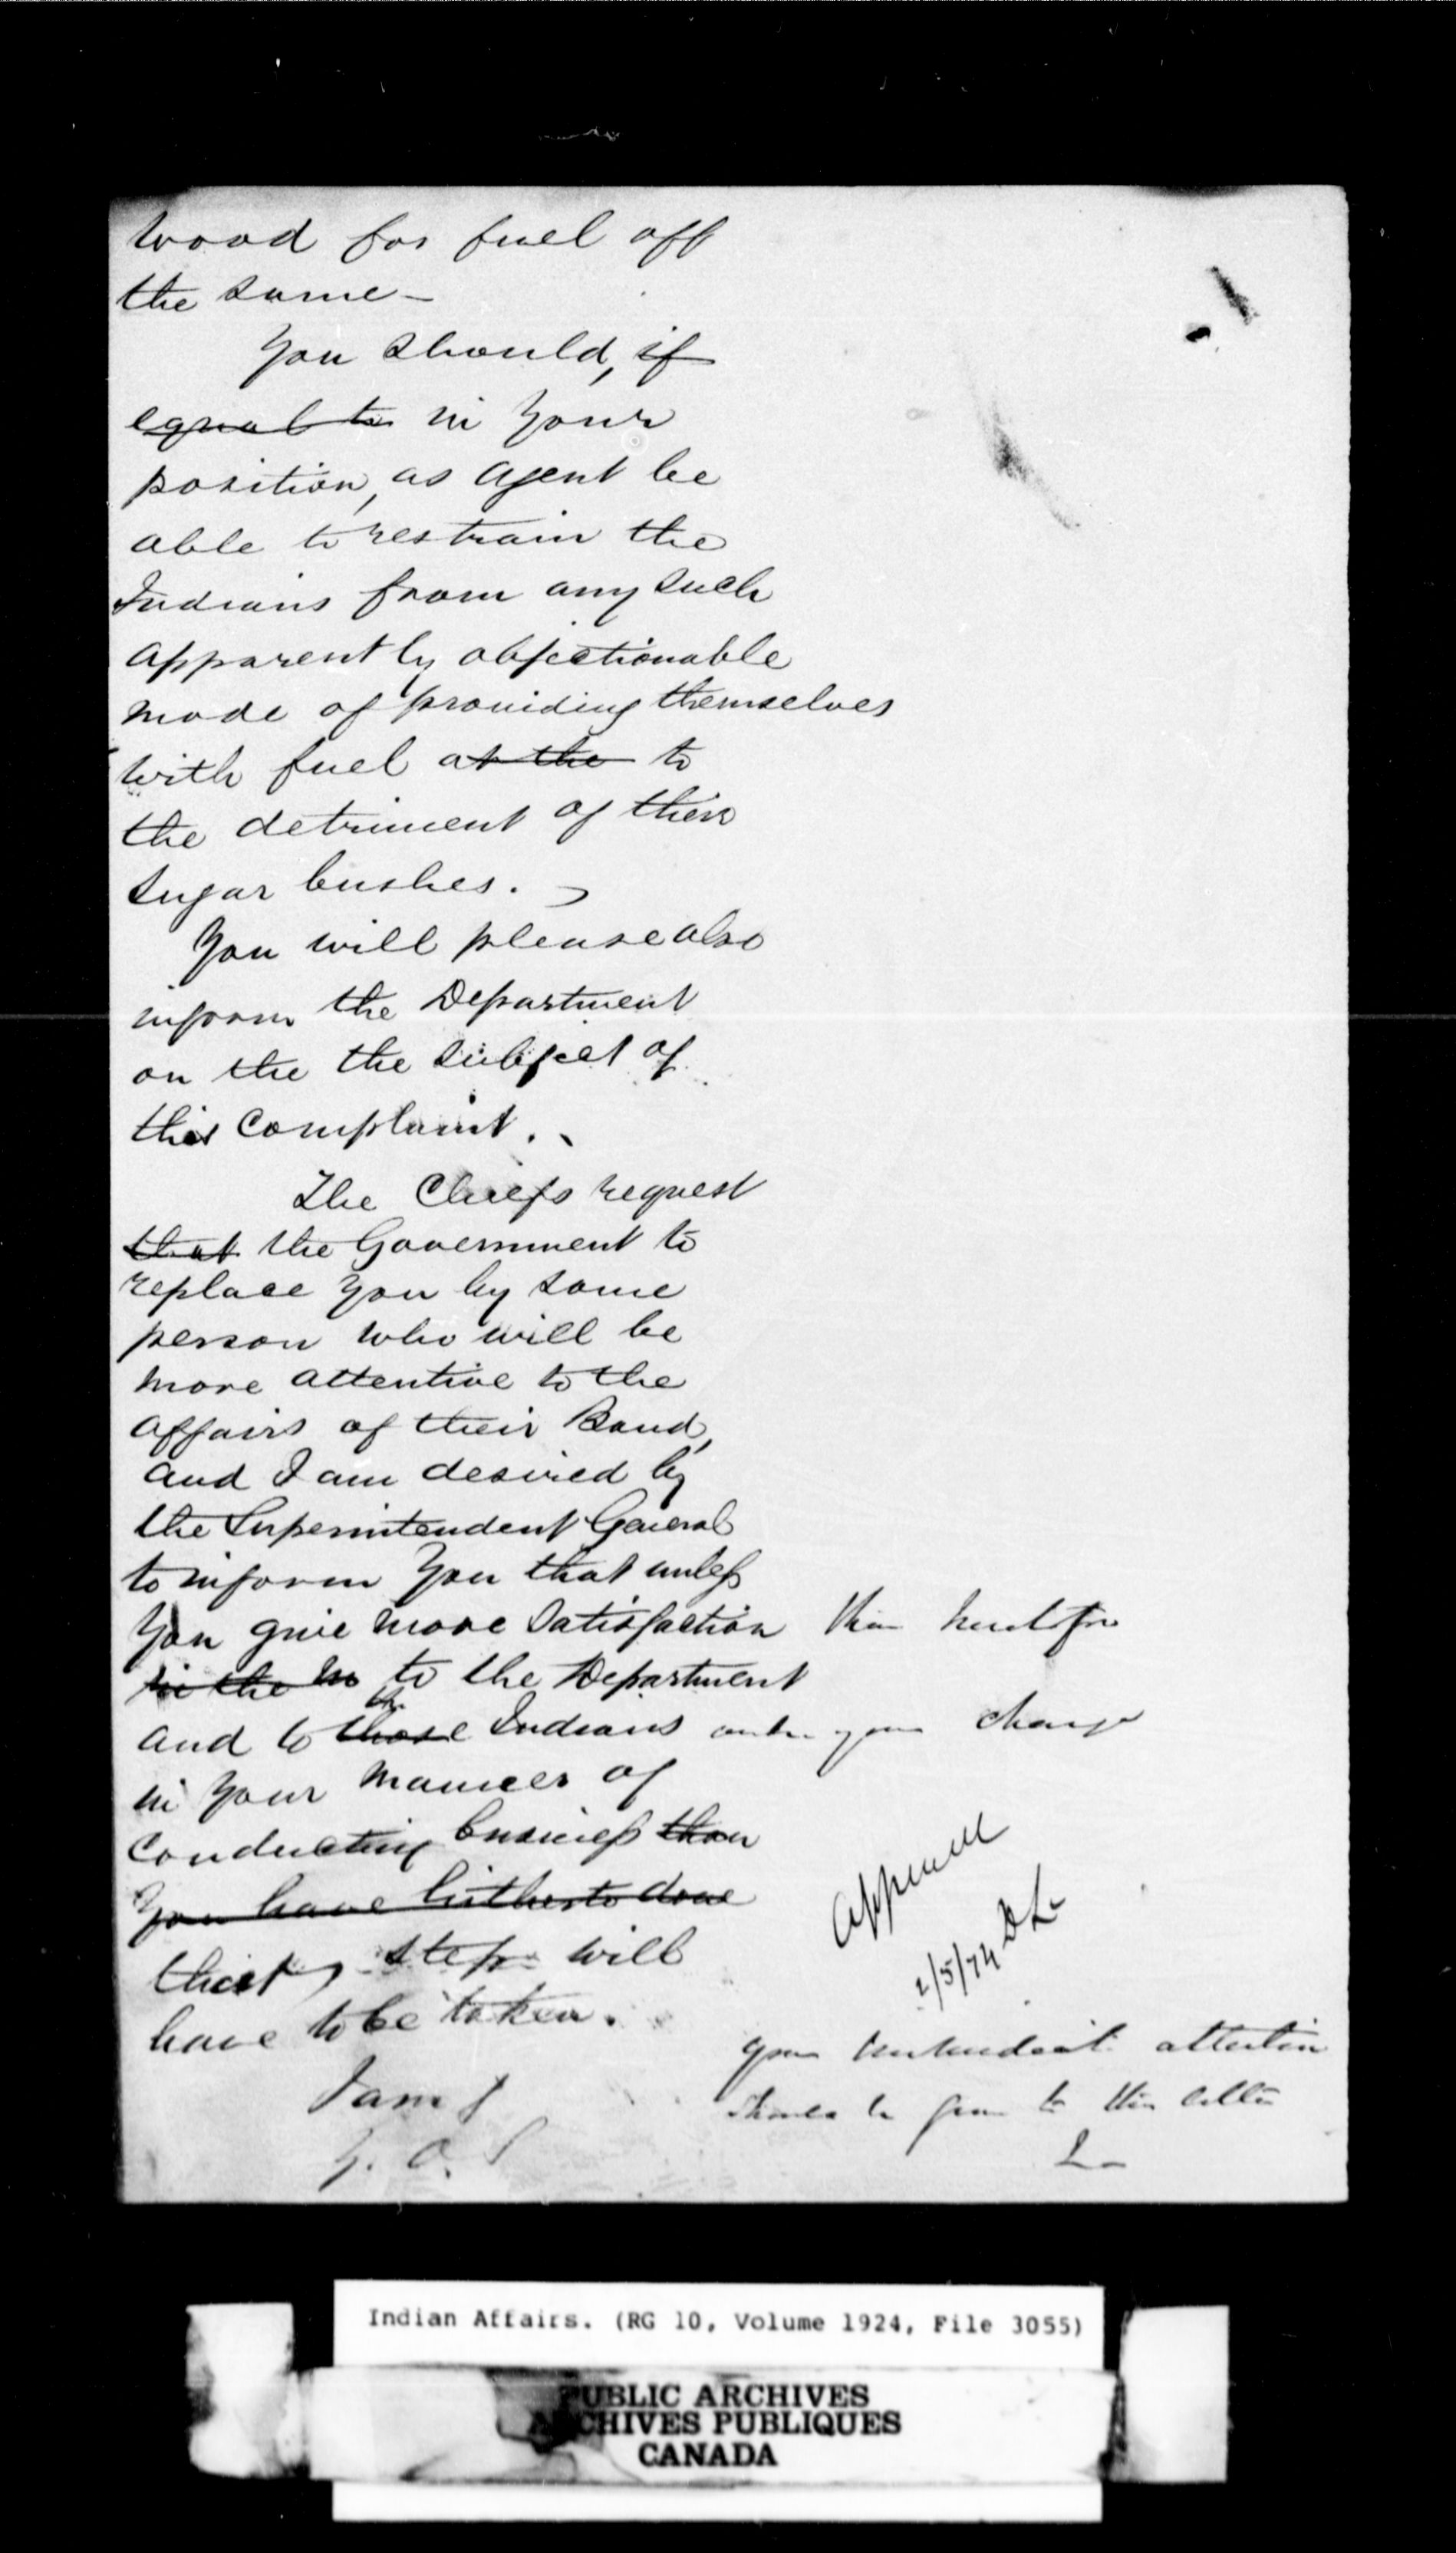 wood for fuel off
the same -
You should, if
equal to in your
position, as agent be
able to restrain the
Indians from any such
apparently objectionable
mode of providing themselves
with fuel at the to
the detriment of their
sugar bushes.
You will please also
inform the Department
on the the subject of
this complaint.
The Chiefs request
that the Government to
replace you by some
person who will be
more attentive to the
affairs of their Band,
and I am desired by
the Superintendent General
to inform you that unless
you give more satisfaction than heretofore
in the m to the Department
the
and to those Indians under your charge
in your manner of
conducting business than
you have hitherto done
that, steps will
have to be taken.
Approved
2/5/74 DL
I am
Y. O. S
your attention
should be given to this letter
L-
Indian Affairs. (RG 10, Volume 1924, File 3055)
PUBLIC ARCHIVES
ARCHIVES PUBLIQUES
CANADA